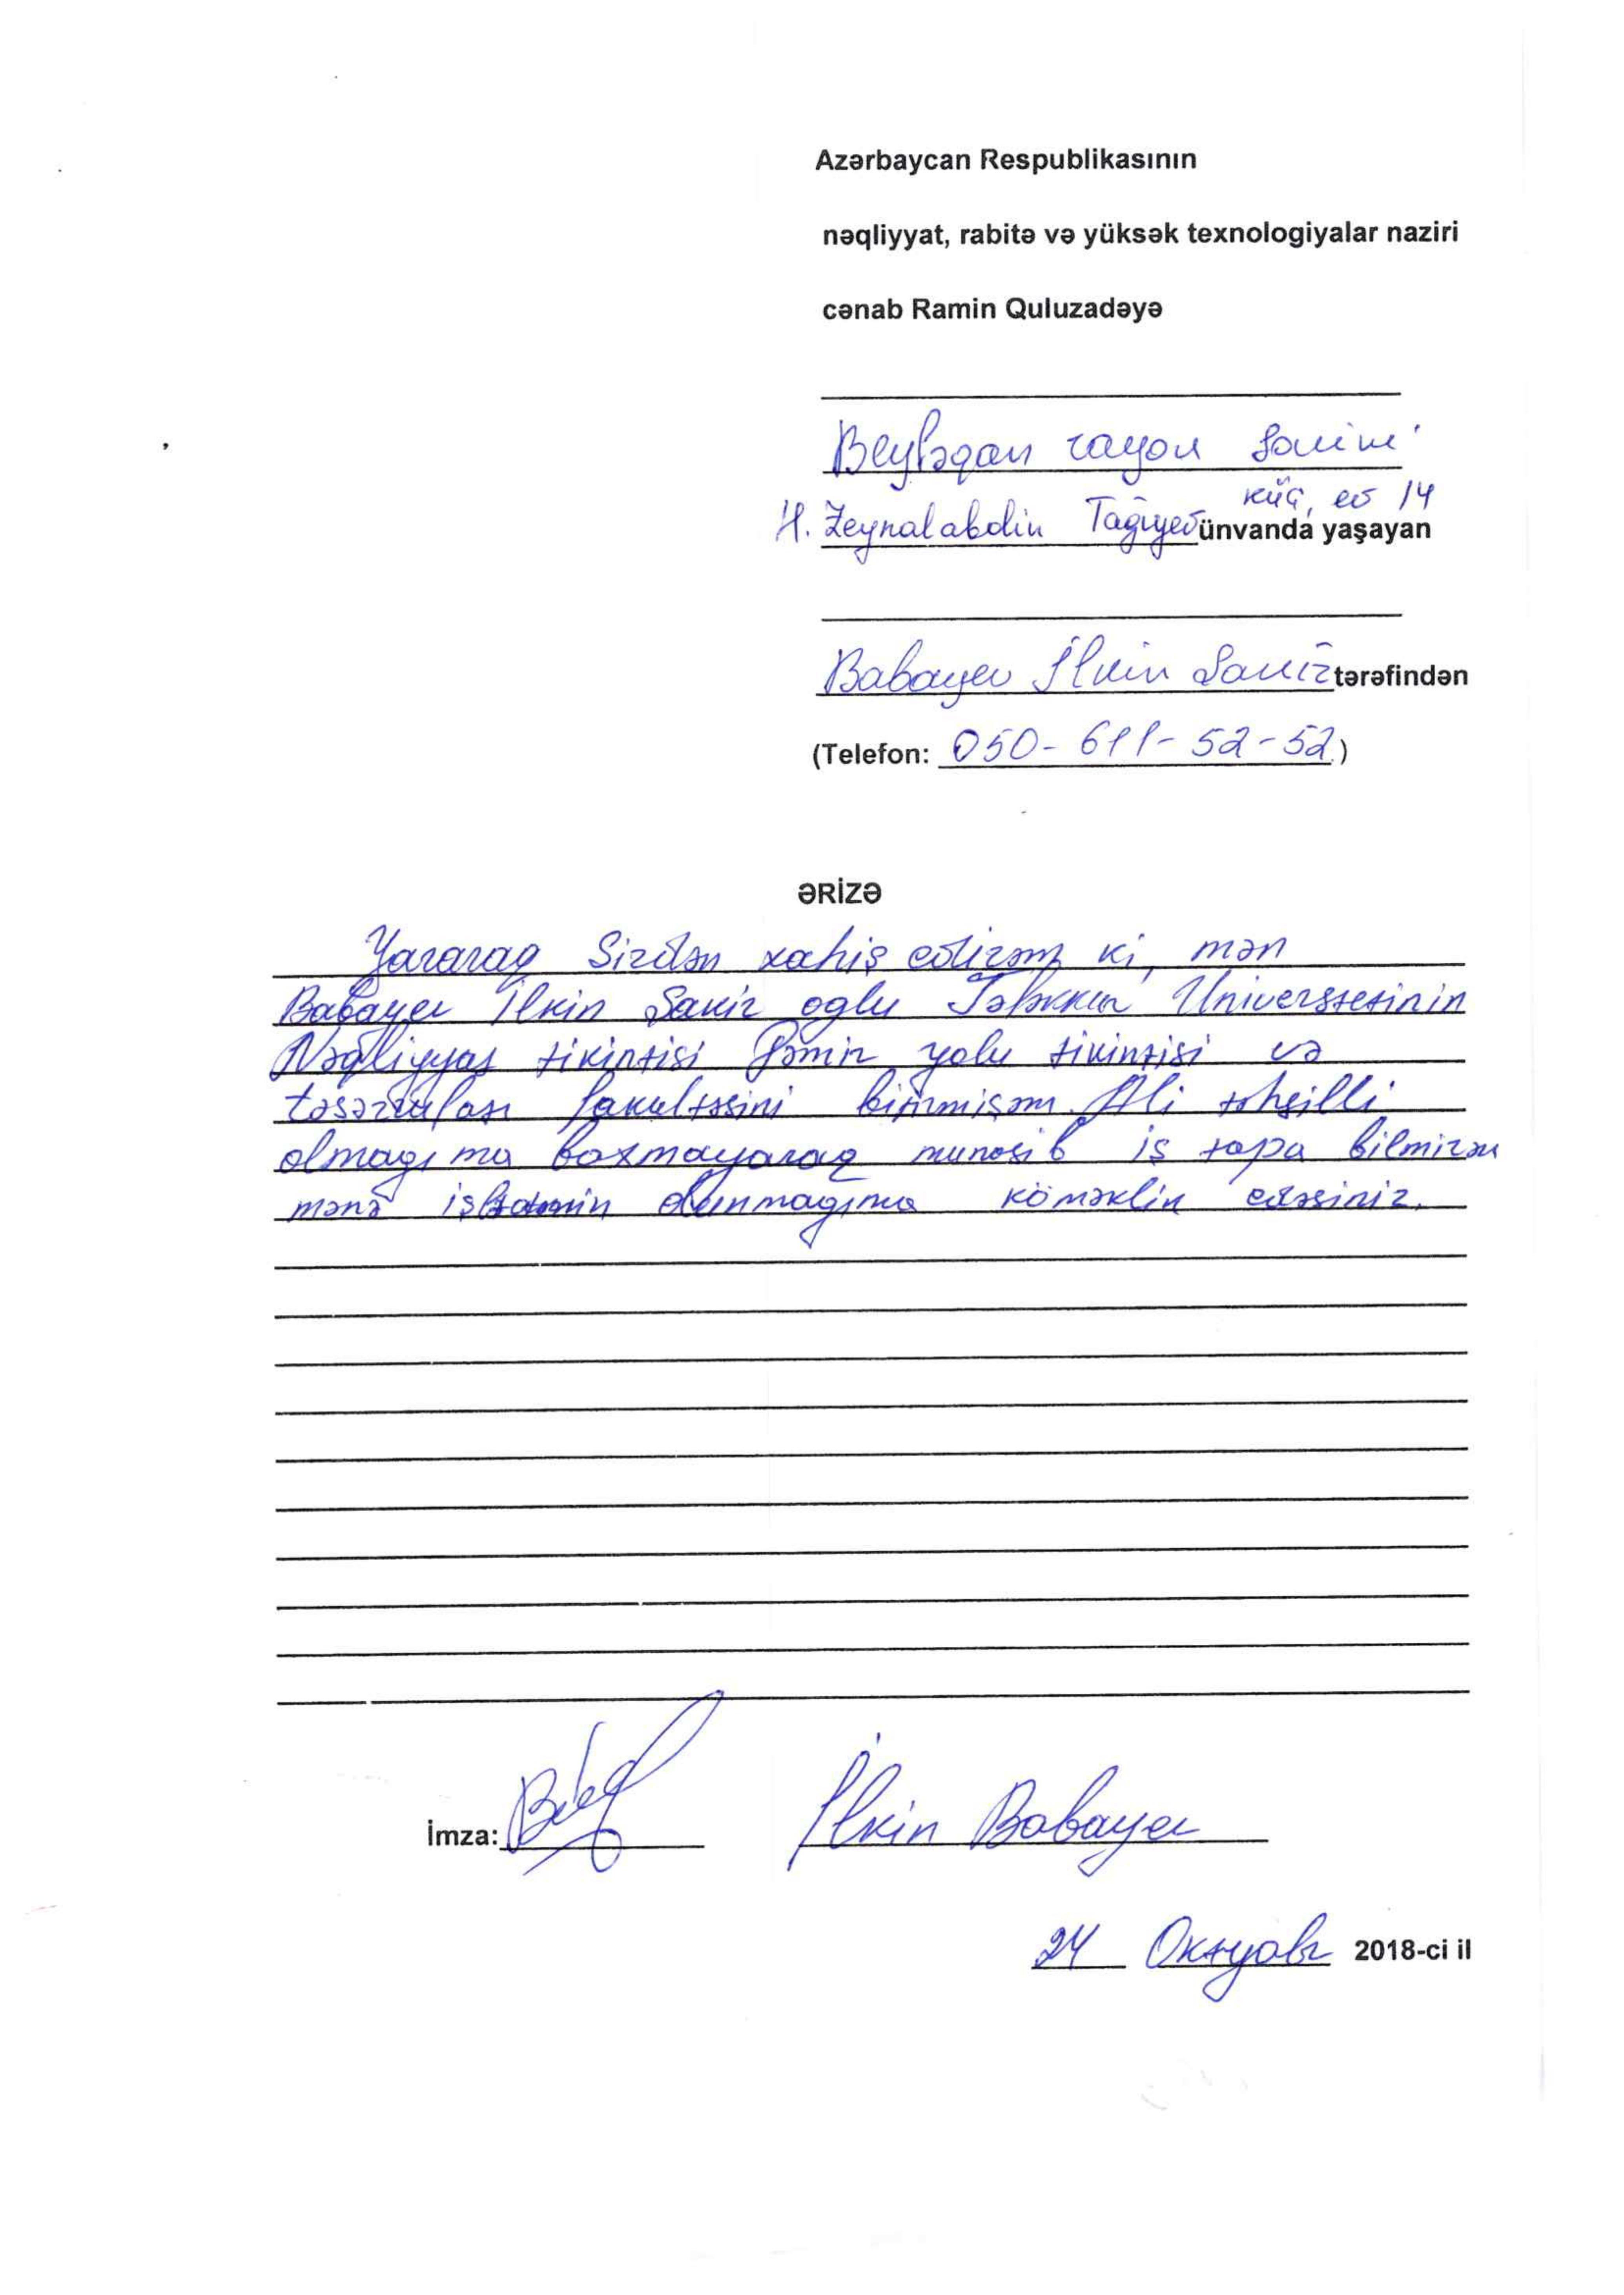 Azərbaycan Respublikasının
nəqliyyat, rabitə və yüksək texnologiyalar naziri
cənab Ramin Quluzadəyə
Beyləqan rayon Sakini
küç, ev 14
H. Zeynalabdin Tağıyev ünvanda yaşayan
Babayev İlkin Sakir tərəfindən
(Telefon: 050-611-52-52)
ƏRİZƏ
Yazaraq Sizdən xahiş edirəm ki, mən
Babayev İlkin Sakir oglu Təfəkkur Universtetinin
Nəqliyyat tikintisi Dəmir yolu tikintisi və
təsərrufatı fakultəsini bitirmişəm. Ali təhsilli
olmagıma baxmayaraq munasib iş tapa bilmirəm
mənə işlə olunmagıma köməklik edəsiniz.
İmza: İlkin Babayev
24 Oktyabr 2018-ci il